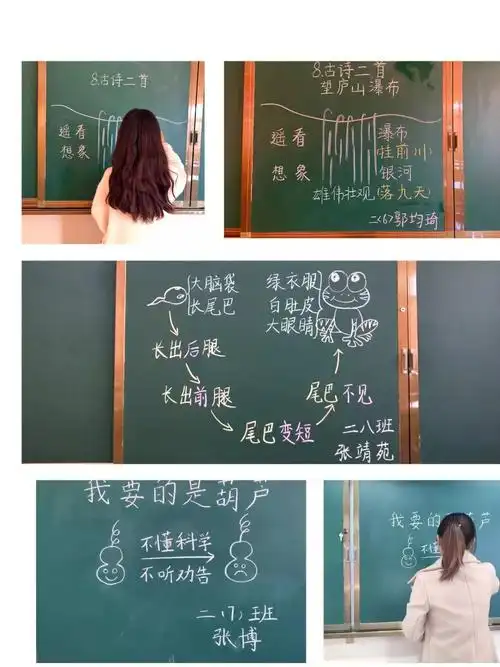 8.古诗二首
遥看
想象
8.古诗二首
望庐山瀑布
遥看 瀑布
(挂前川)
想象 银河
雄伟壮观(落九天)
二(6)郭均琦
大脑袋
长尾巴
长出后腿
长出前腿
尾巴变短
尾巴不见
绿衣服
白肚皮
大眼睛
二八班
张靖苑
我要的是葫芦
不懂科学
不听劝告
二(7)班
张博
我要的
不懂